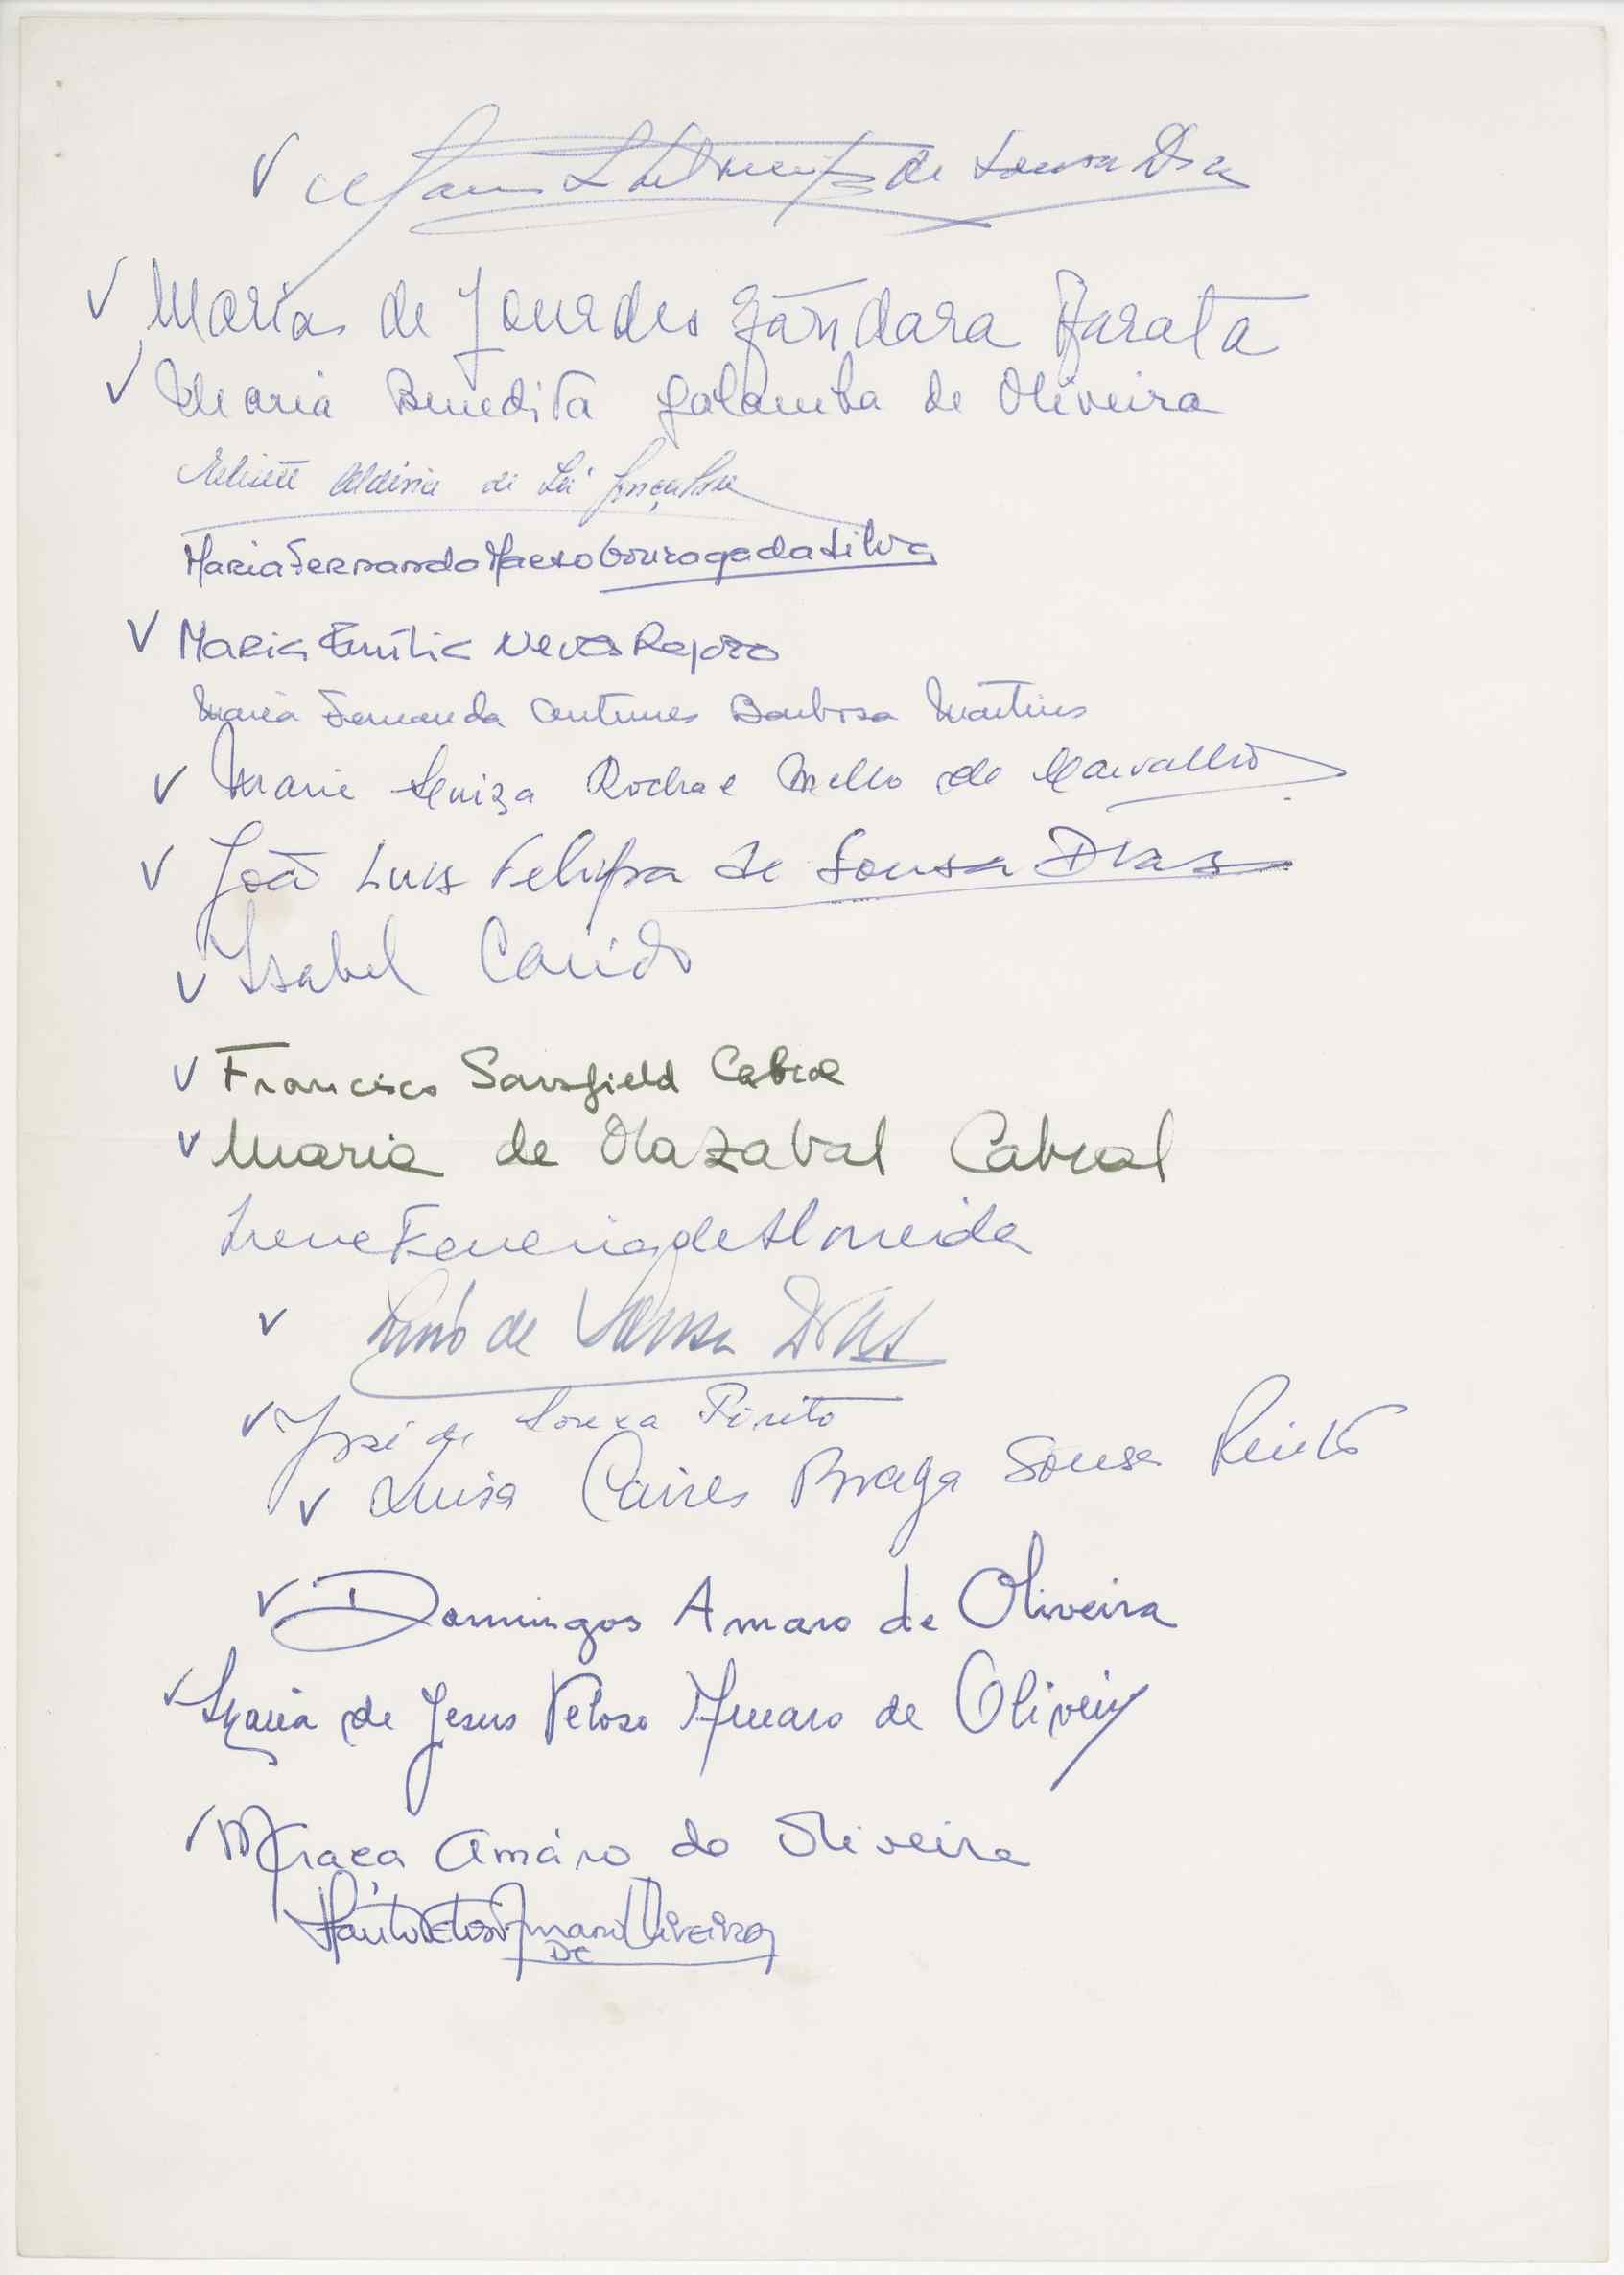 de Sousa Dias
Maria de Lourdes Gândara Barata
Maria Benedita Galamba de Oliveira
de Sá Gonçalves
Maria Fernanda da Silva
Maria Emília Neves Raposo
Maria Fernanda Antunes Barbosa Martins
Maria Luiza Rocha e Mello de Carvalho
João Luis Felippa de Sousa Dias
Isabel Carido
Francisco Sarsfield Cabral
Maria de Olazabal Cabral
Irene Ferreira de Almeida
de Sousa Dias
José de Sousa Pinto
Luisa Caires Braga Sousa Pinto
Domingos Amaro de Oliveira
Maria de Jesus Veloso Amaro de Oliveira
M Graça Amáro do Oliveira
Veloso Amaro Oliveira
DE